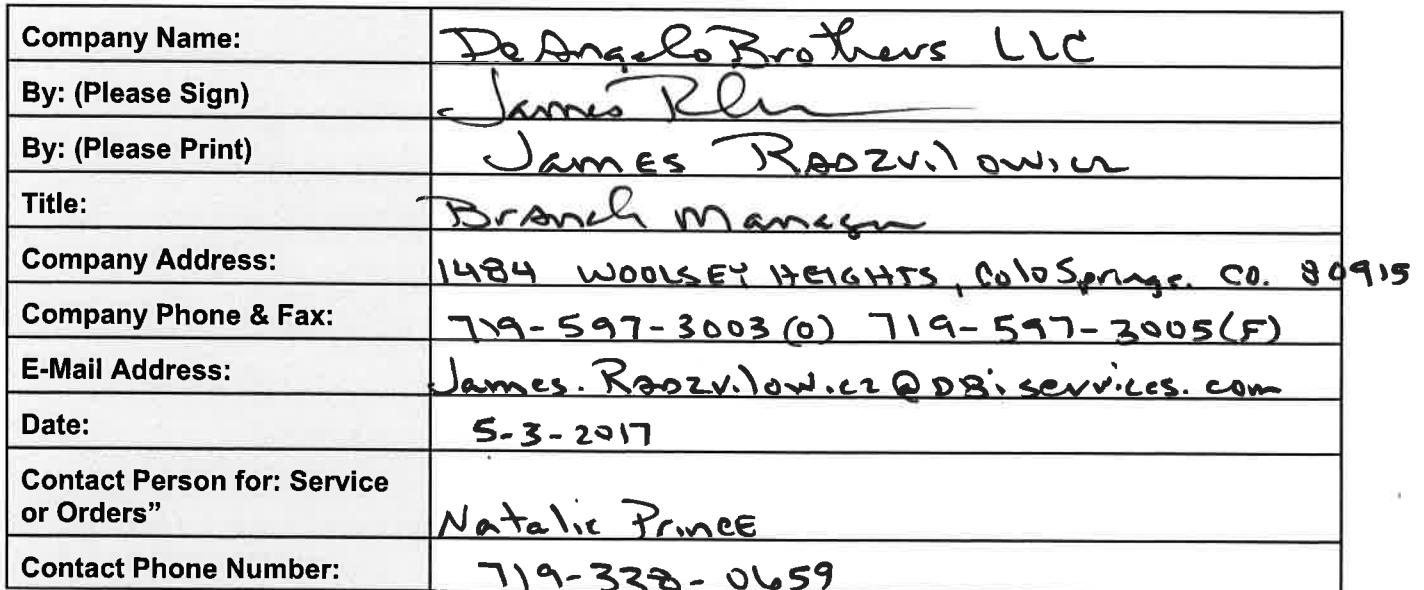 Company Name: DeAngelo Brothers LLC
By: (Please Sign) James
By: (Please Print) James Radzvilowicz
Title: Branch Manager
Company Address: 1484 WOOLSEY HEIGHTS, Colo Springs. CO. 80915
Company Phone & Fax: 719-597-3003 (O) 719-597-3005 (F)
E-Mail Address: James.Radzvilowicz@DBiservices.com
Date: 5-3-2017
Contact Person for: Service
or Orders” Natalie Prince
Contact Phone Number: 719-338-0659